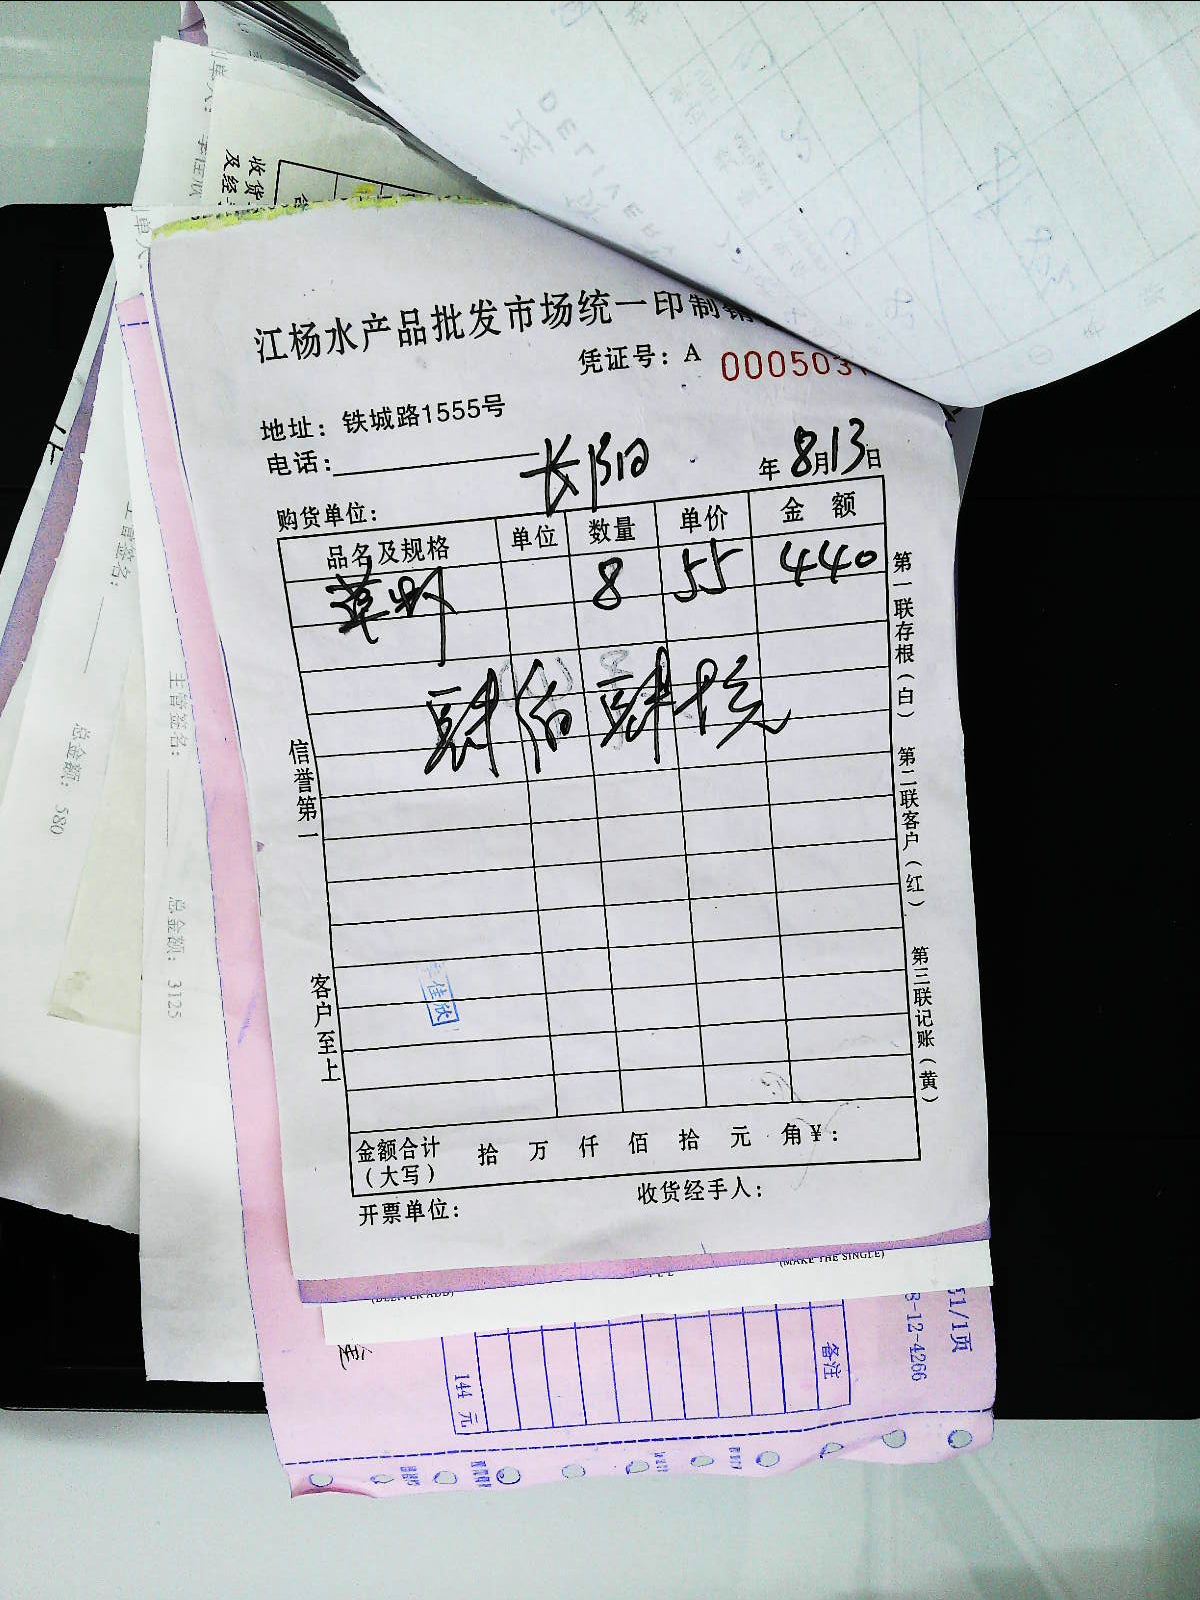 江杨水产品批发市场统一印制销
凭证号：A 0005031
地址：铁城路1555号
电话：
长阳
年 8月13日
购货单位：
品名及规格 单位 数量 单价 金额
草虾 8 55 440
肆佰肆拾元
第一联存根（白）
第二联客户（红）
第三联记账（黄）
信誉第一
客户至上
李佳欣
金额合计（大写） 拾 万 仟 佰 拾 元 角 ¥：
开票单位：
收货经手人：
主管签名：
总金额：580
主管签名：
总金额：3125
收货
及经
(MAKE THE SINGLE)
备注
144 元
51/1页
8-12-4266